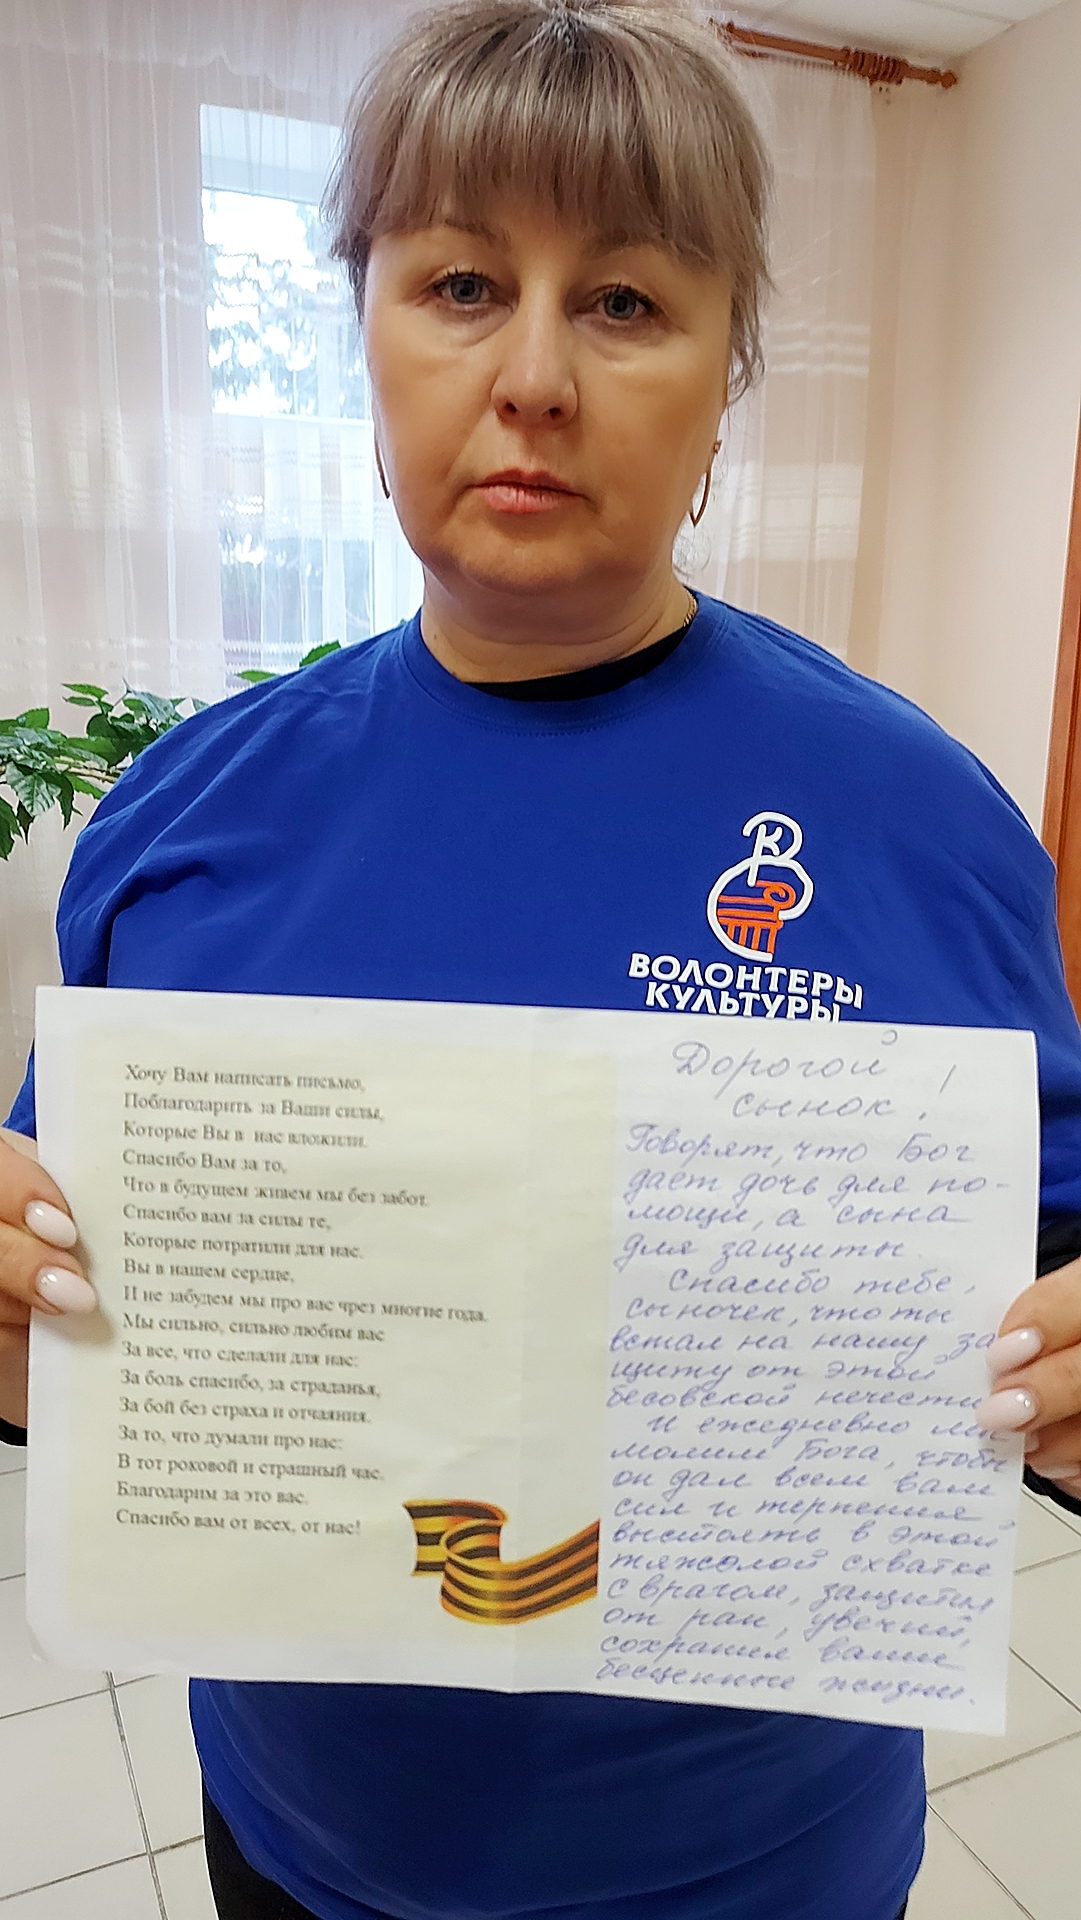 ВОЛОНТЕРЫ
КУЛЬТУРЫ
Хочу Вам написать письмо,
Поблагодарить за Ваши силы,
Которые Вы в нас вложили.
Спасибо Вам за то,
Что в будущем живем мы без забот.
Спасибо вам за силы те,
Которые потратили для нас.
Вы в нашем сердце,
И не забудем мы про вас чрез многие года.
Мы сильно, сильно любим вас
За все, что сделали для нас:
За боль спасибо, за страданья,
За бой без страха и отчаяния.
За то, что думали про нас:
В тот роковой и страшный час.
Благодарим за это вас.
Спасибо вам от всех, от нас!
Дорогой
сынок!
Говорят, что Бог
дает дочь для по-
мощи, а сына
для защиты.
Спасибо тебе,
сыночек, что ты
встал на нашу за
щиту от этой
бесовской нечести
И ежедневно мы
молим Бога, чтобы
он дал всем вам
сил и терпения
выстоять в этой
тяжолой схватке
с врагом, защитил
от ран, увечий,
сохранил ваши
бесценные жизни.